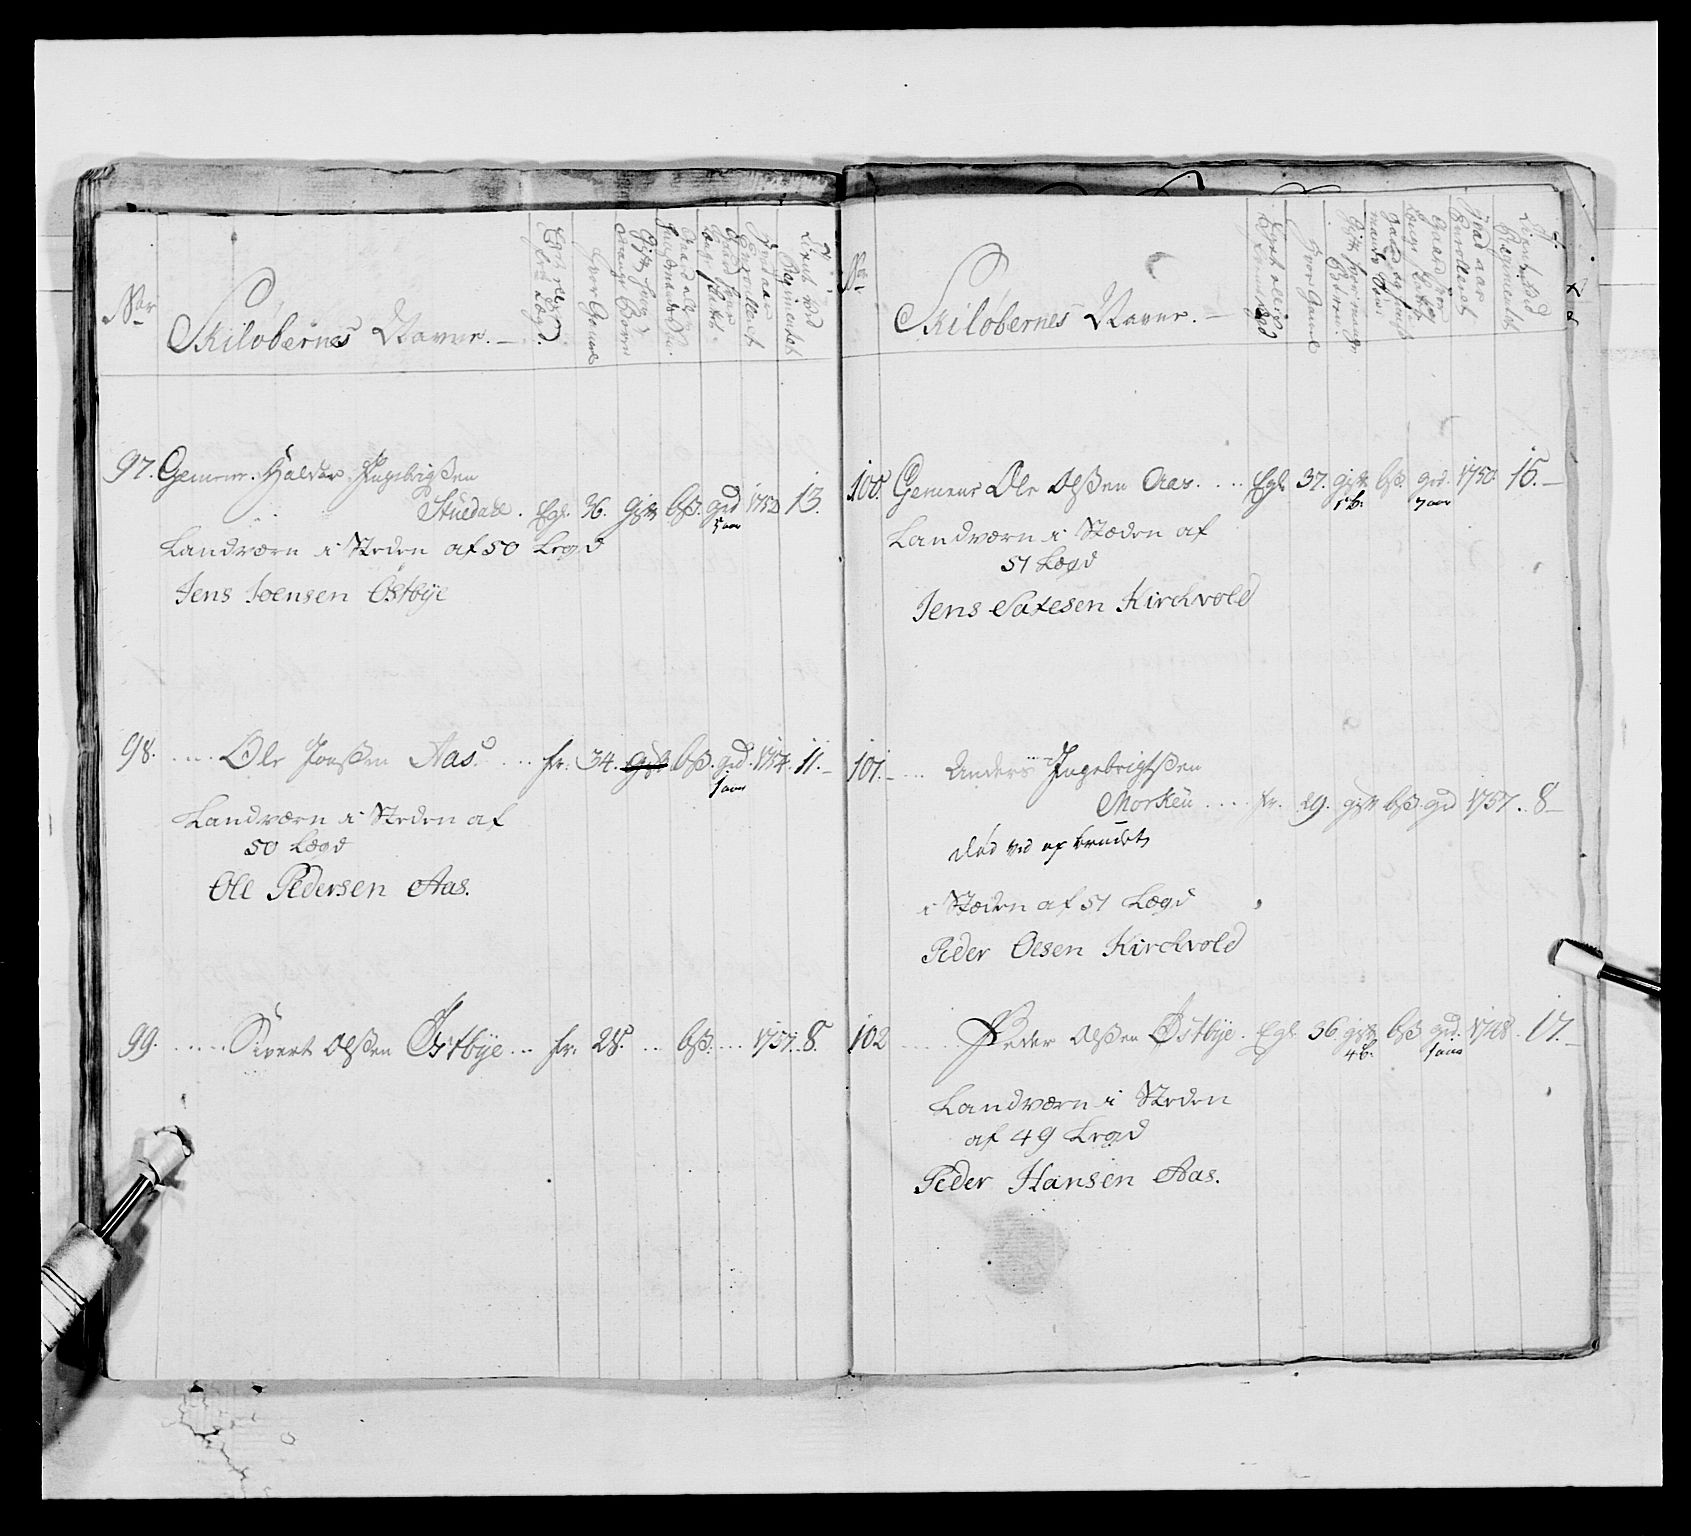 No
Skilöbernes Navne.
97. Gemene Haldor Ingebrigtßen
Stuedahl. Egl. 36. gift bß. gd 1752 13.
5 aar
Landværn i Steden af 50 Legd
Jens Joensen Östbÿe
98. Ole Jonßen Aas. fr. 34. gift bß. gd. 1754. 11.
1 aar
Landværn i Steden af
50 Lægd
Ole Pedersen Aas.
99. Sivert Olßen Östbÿe fr. 28. bß. 1757. 8.
No
Skilöbernes Navne.
100. Gemene Ole Olßen Aas. Egl. 37. gift bß. gd. 1750. 15.
1 b. 7 aar
Landværn i Stæden af
51 Lægd
Jens Kirchvold
101. Anders Ingebrigtßen
Morkeu fr. 29. gift bß. gd 1757. 8
död ved
i Stæden af 51 Lægd
Peder Olsen Kirchvold
102 Peder Olßen Östbÿe. Egl 36. gift bß gd. 1748. 17.
4 b. 1 aar
Landværn i Steden
af 49 Legd
Peder Hansen Aas.